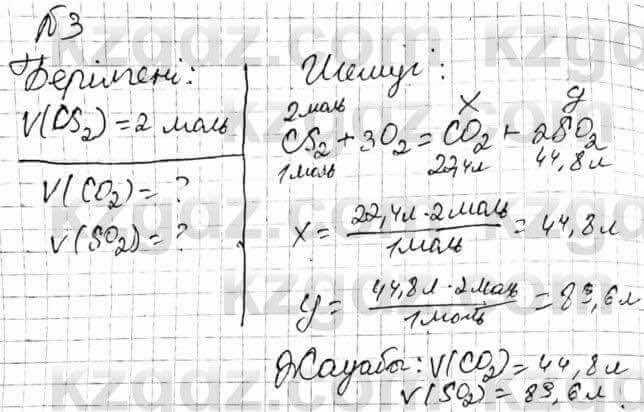 №3
Берілгені:
V(CS₂) = 2 моль
V(CO₂) = ?
V(SO₂) = ?
Шешуі:
2 моль x y
CS₂ + 3O₂ = CO₂ + 2SO₂
1 моль 22,4л 44,8л
x = 22,4л · 2 моль / 1 моль = 44,8 л
y = 44,8 л · 2 моль / 1 моль = 89,6 л
Жауабы: V(CO₂) = 44,8 л
V(SO₂) = 89,6 л.
kzgdz.com